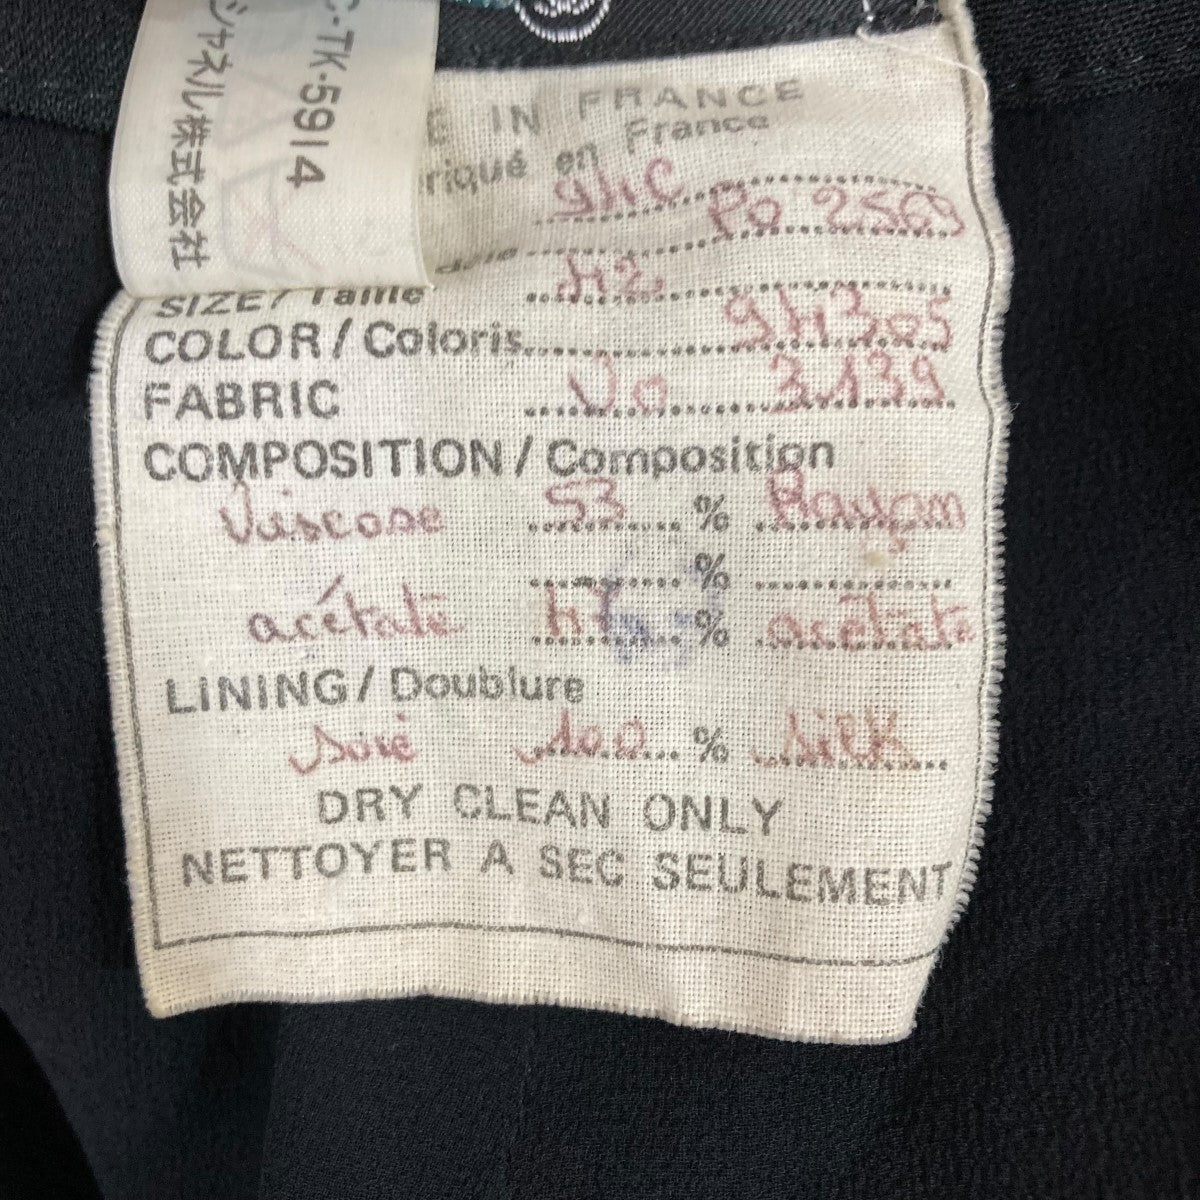 C-TK-5914
シャネル株式会社
IN FRANCE
riqué en France
94C PO 2569
SIZE / Taille 42
COLOR / Coloris 94305
FABRIC Vo 3139
COMPOSITION / Composition
Viscose 53 % Rayon
%
acétate 47 % acétate
LINING / Doublure
soie 100 % silk
DRY CLEAN ONLY
NETTOYER A SEC SEULEMENT